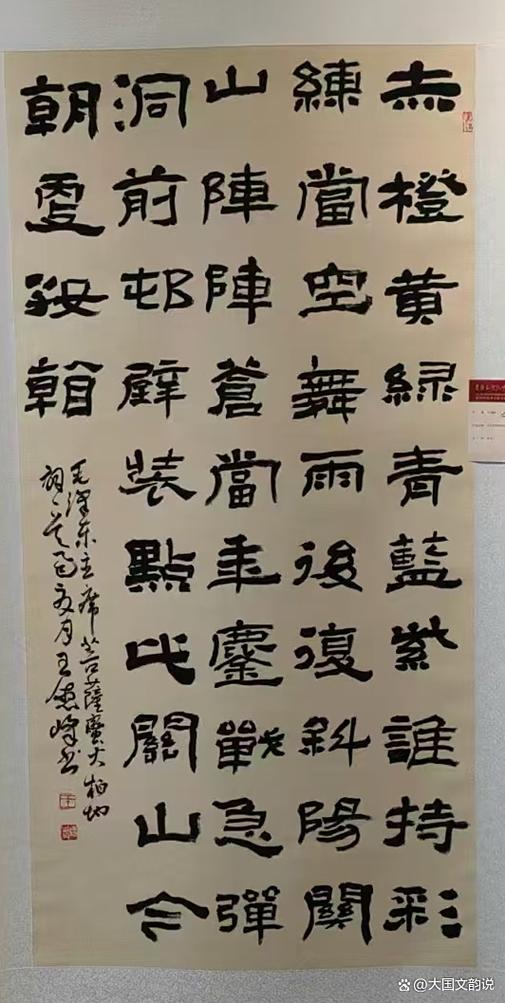 赤橙黄緑青藍紫誰持彩
練當空舞雨後復斜陽關
山陣陣蒼當年鏖戰急彈
洞前邨壁裝點此關山今
朝更好看
毛澤东主席菩薩蠻大柏地
詞一首夏月王德峰书
@大国文韵说